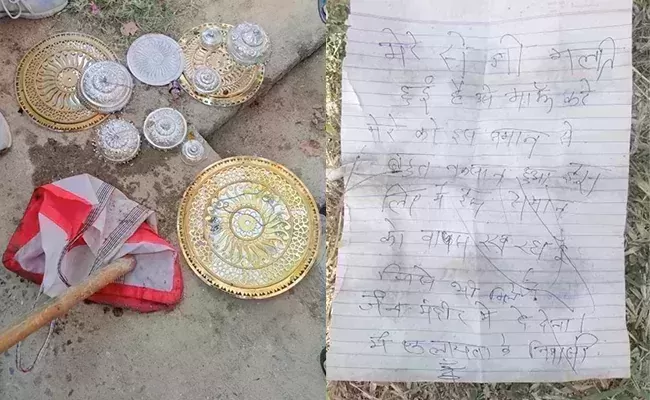 मेरे से जो गलती
हुई है मुझे माफ करे
मेरे को इस समान से
बहुत नुकसान हुआ इस
लिए में इस समान
को वापस रख रहा हूँ
जिसे भी मिले
जैन मंदिर में दे देना।
में के निवासी
है